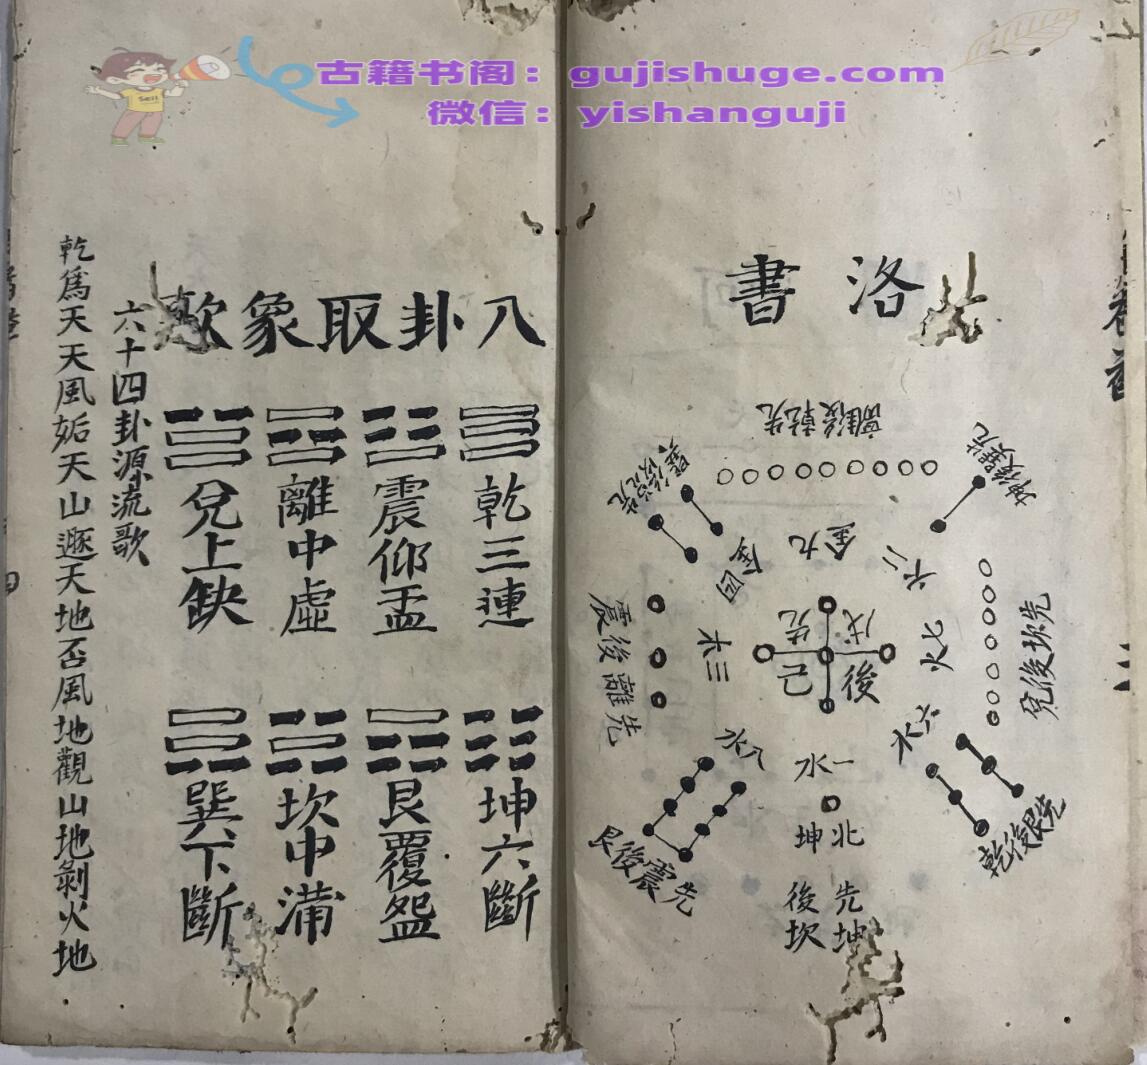 古籍书阁：gujishuge.com
微信：yishanguji
洛書
先乾後離
先巽後坤
先坎後兌
先艮後乾
先坤後坎
北坤
先震後艮
先離後震
金九
火七
水六
一水
水八
三木
金四
先後
戊己
八卦取象歌
乾三連
震仰盂
離中虛
兌上缺
坤六斷
艮覆盌
坎中滿
巽下斷
六十四卦源流歌
乾為天天風姤天山遯天地否風地觀山地剝火地